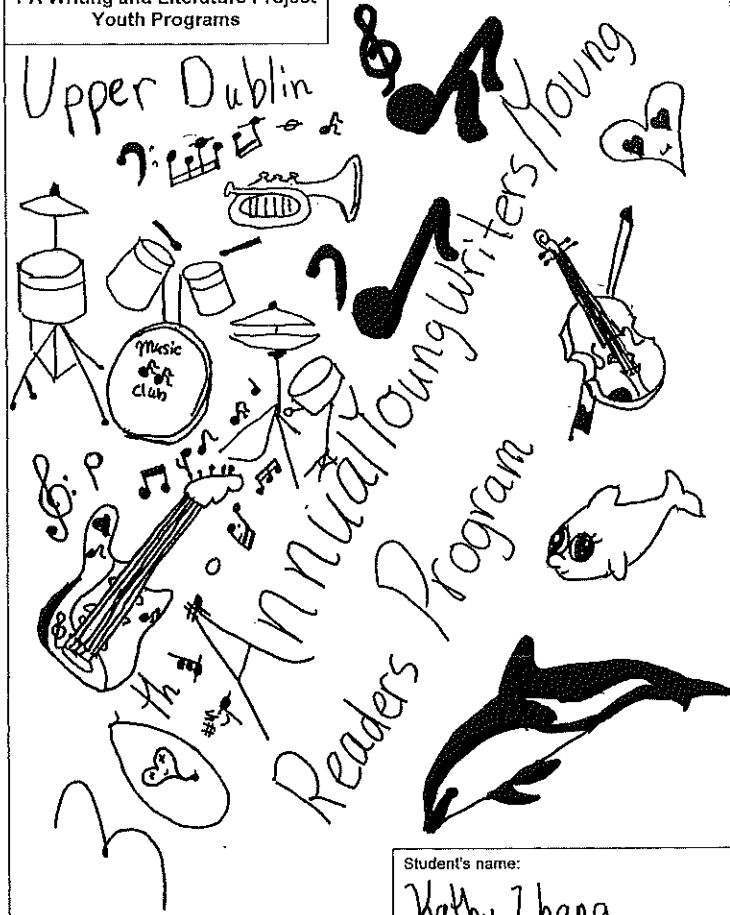 PA Writing and Literature Project
Youth Programs
Upper Dublin
Music
Club
Annual Young Writers/Young
Readers Program
th
Student's name:
Kathy Zhang